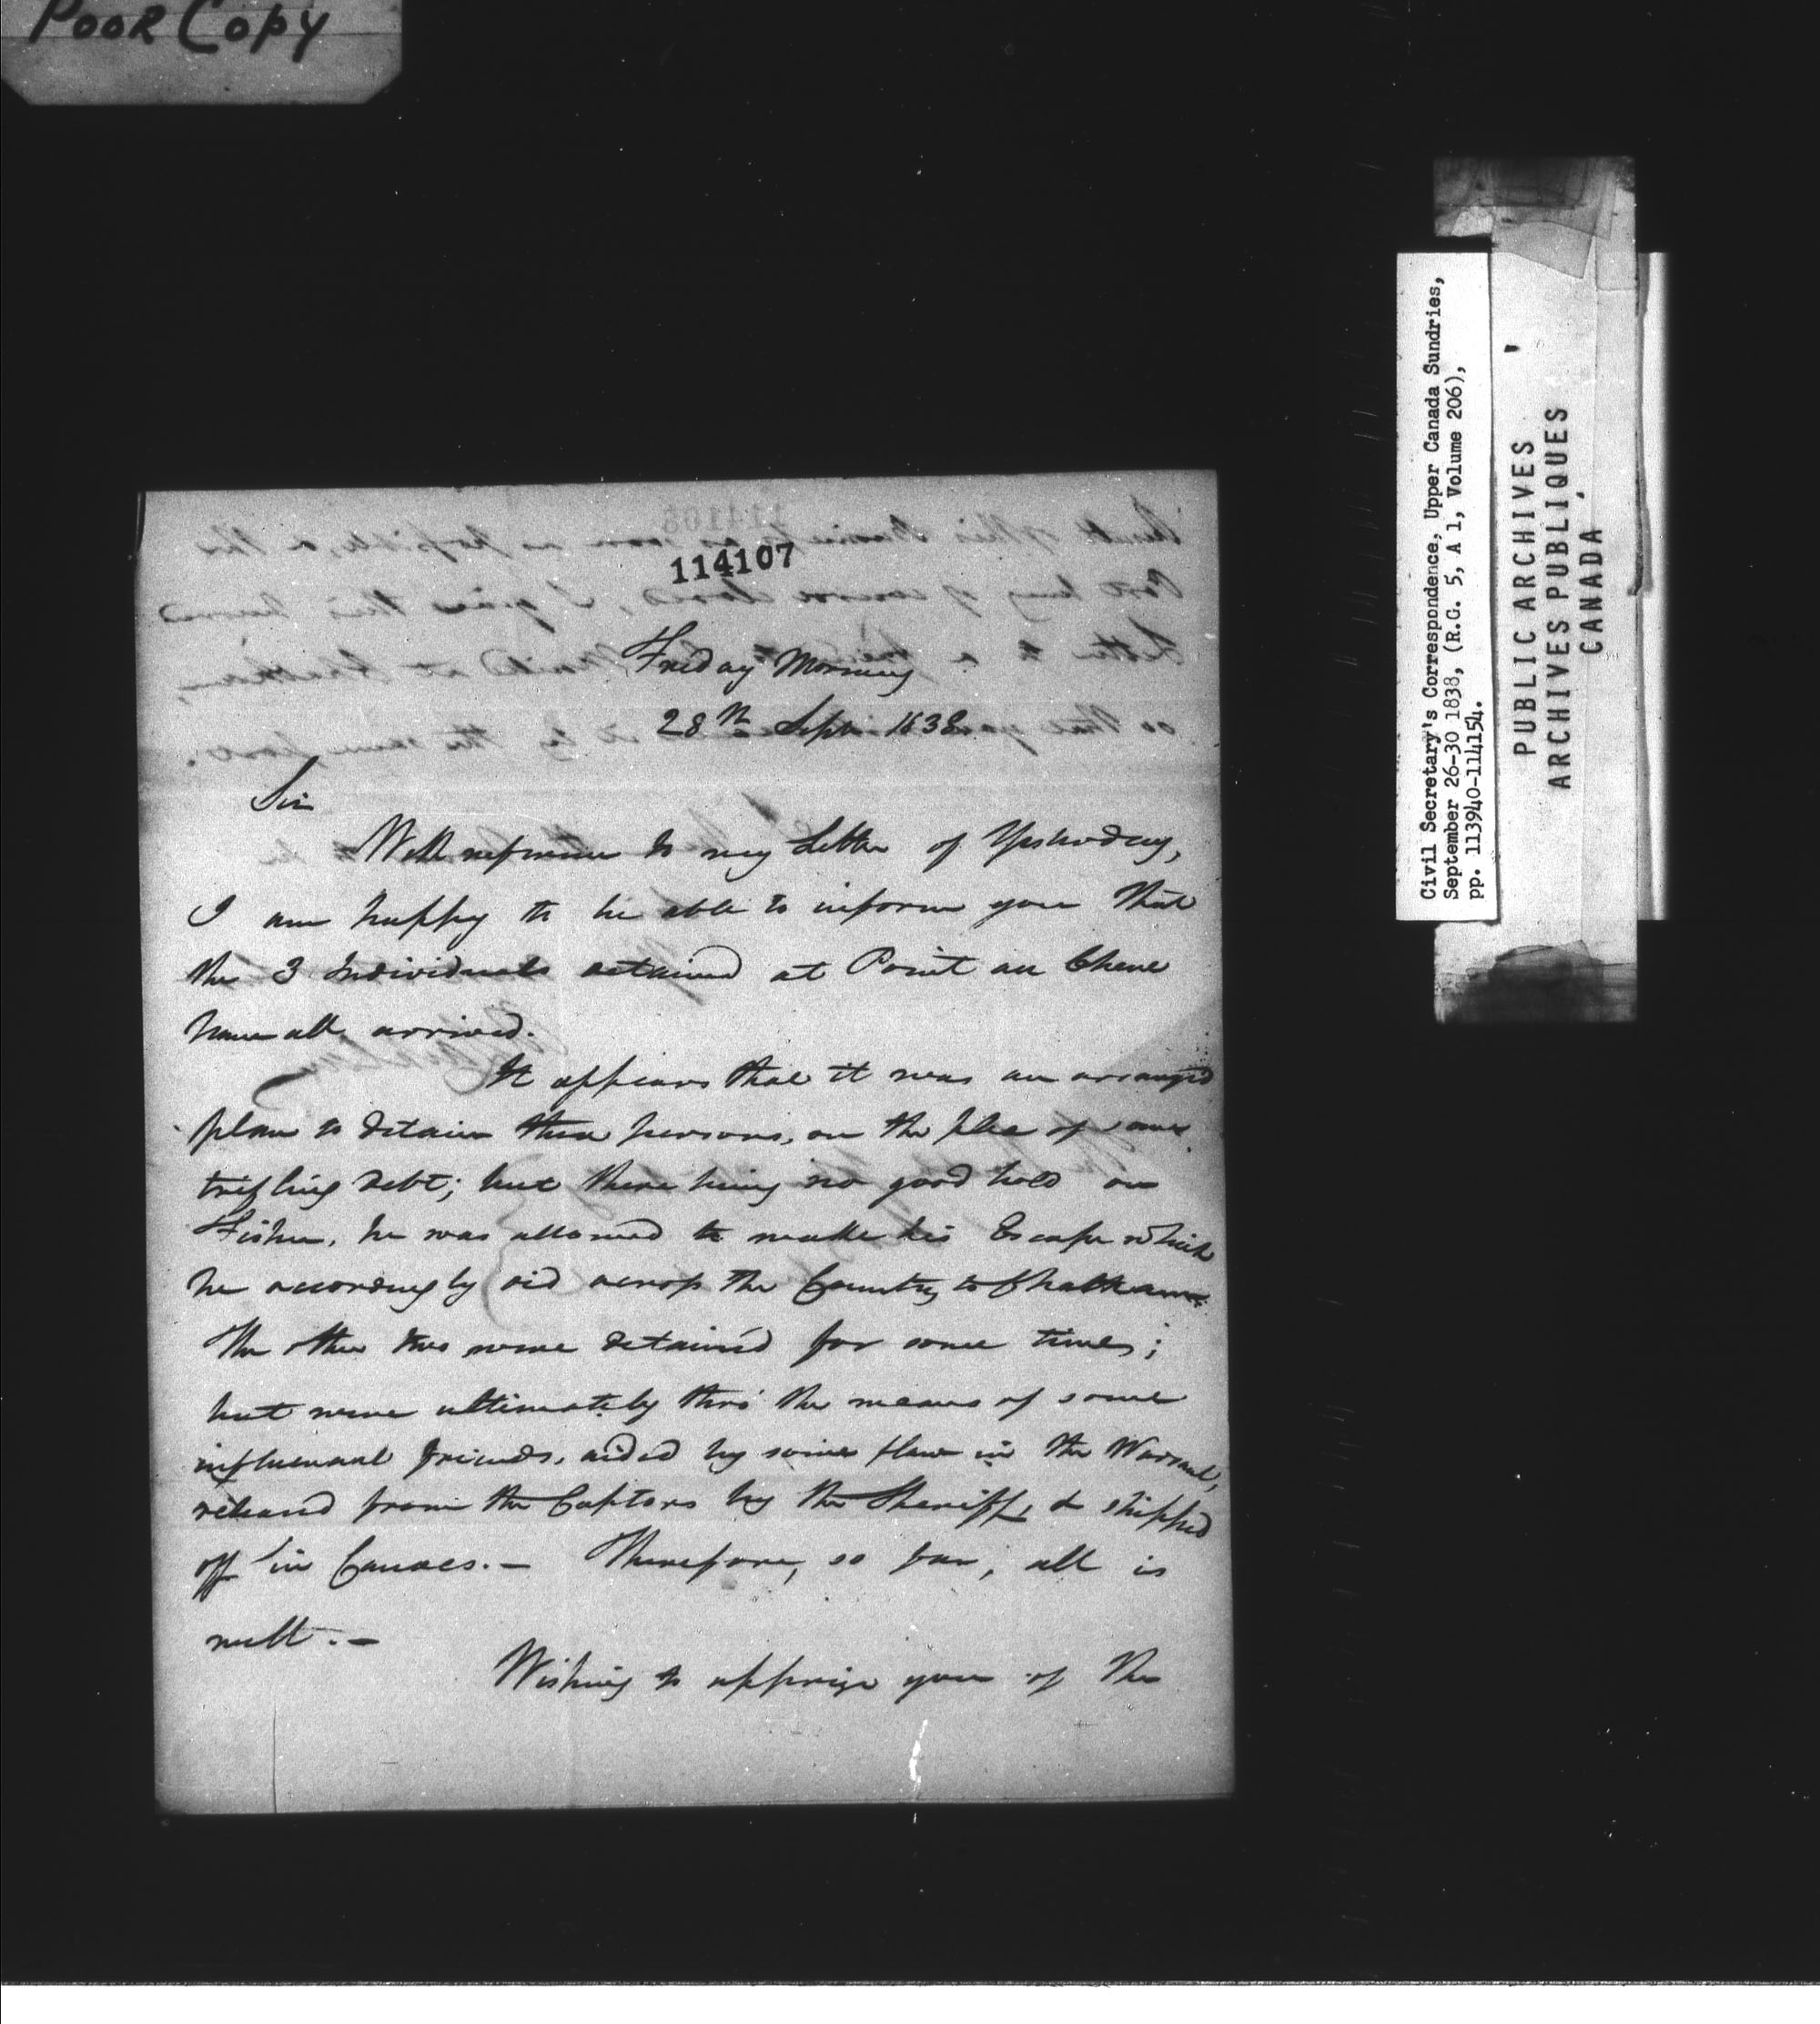 POOR COPY
114107
Friday Morning
28th Septr 1838.
Sir
With reference to my Letter of Yesterday,
I am happy to be able to inform you that
the 3 Individuals detained at Point au Chene
have all arrived.
It appears that it was an arranged
plan to detain these persons, on the plea of some
trifling debt; but there being no good hold on
Fisher, he was allowed to make his Escape which
he accordingly did across the Country to Chatham.
The other two were detain'd for some time;
but were ultimately thro' the means of some
influencial friends, aided by some flaw in the Warrant,
released from the Captors by the Sheriff, & shipped
off in Canoes. — Therefore, so far, all is
well. —
Wishing to apprize you of the
Civil Secretary's Correspondence, Upper Canada Sundries,
September 26-30 1838, (R.G. 5, A 1, Volume 206),
pp. 113940-114154.
PUBLIC ARCHIVES
ARCHIVES PUBLIQUES
CANADA